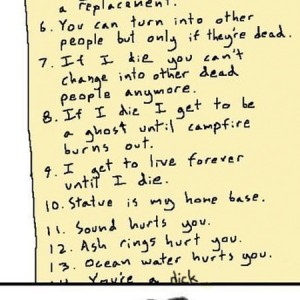 a replacement.
6. You can turn into other
people but only if they're dead.
7. If I die you can't
change into other dead
people anymore.
8. If I die I get to be
a ghost until campfire
burns out.
9. I get to live forever
until I die.
10. Statue is my home base.
11. Sound hurts you.
12. Ash rings hurt you.
13. Ocean water hurts you.
14. You're a dick